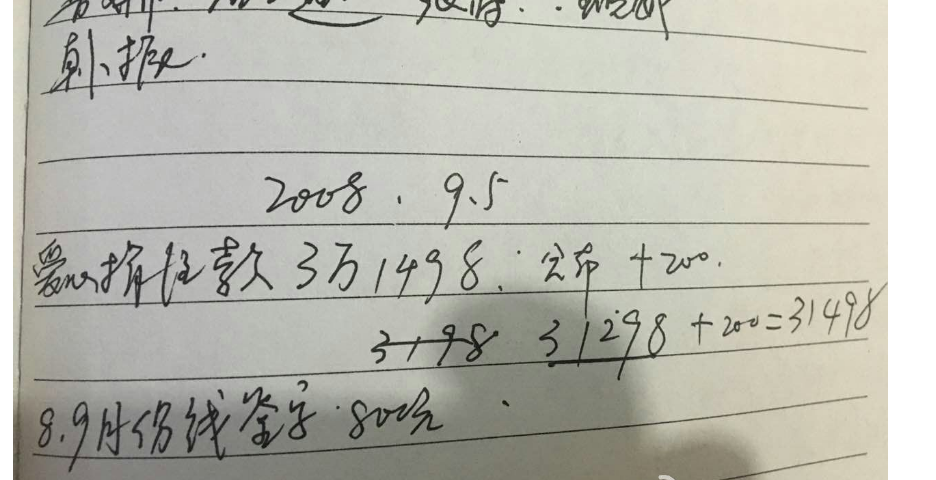 卓、振.
2008.9.5
爱心捐注款3万1498.公布+200.
3198 31298+200=31498
8.9月份线签字.800元